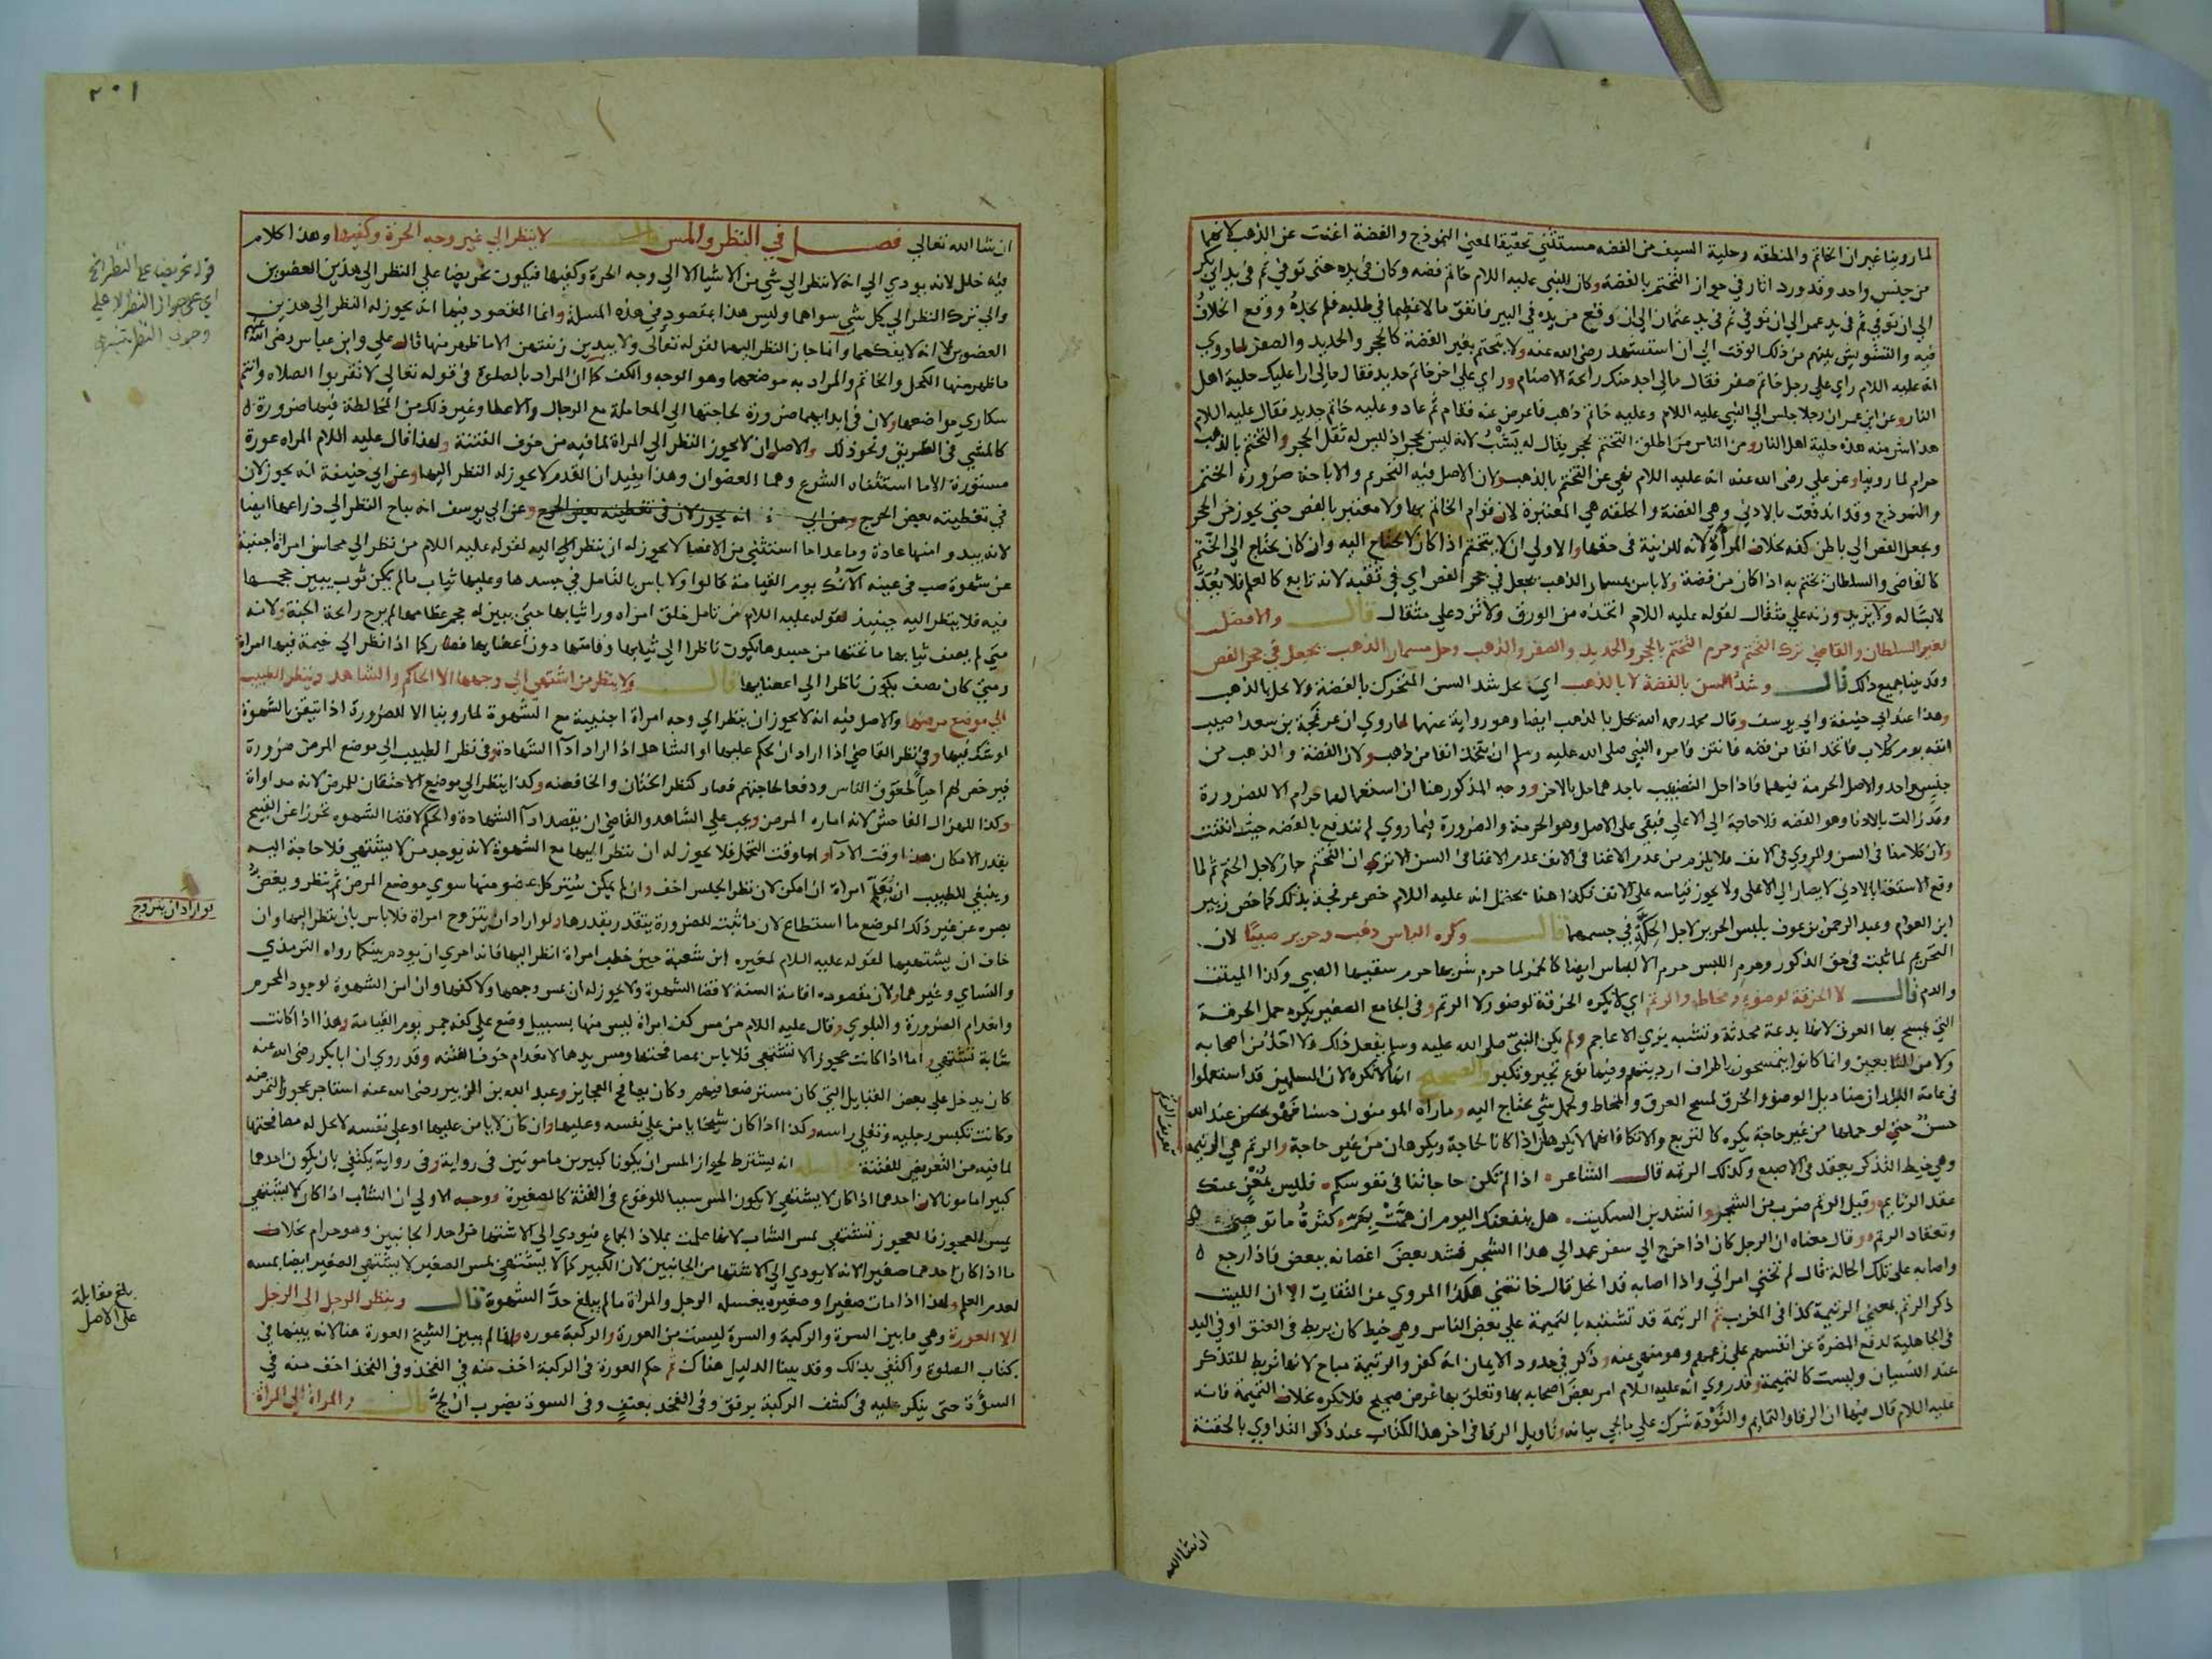 لما روينا غير ان الخاتم والمنطقه وحلية السيف من الفضه مستثني تحقيقا لمعني النموذج والفضة اغنت عن الذهب لانهما
من جنس واحد وقد ورد اثار في جواز التختم بالفضة وكان للنبي عليه اللام خاتم فضه وكان في يده حتى توفي ثم في يد ابي بكر
الي ان توفي ثم في يد عمر الي ان توفي ثم في يد عثمان الي ان وقع من يده في البير فانفق مالا عظيما في طلبه فلم يجده ووقع الخلاف
فيه والتشويش بينهم من ذلك الوقت الي ان استشهد رضى الله عنه ولا يتختم بغير الفضة كالحجر والحديد والصفر لما روي
انه عليه اللام راي علي رجل خاتم صفر فقال مالي اجد منك رائحة الاصنام وراي علي اخر خاتم حديد فقال مالي ارا عليك حلية اهل
النار وعن ابن عمر ان رجلا جلس الي النبي عليه اللام وعليه خاتم ذهب فاعرض عنه فقام ثم عاد وعليه خاتم حديد فقال عليه اللام
هذا اشر منه هذه حلية اهل النار ومن الناس من اطلق التختم بحجر يقال له يشب لانه ليس بحجر اذ ليس له ثقل الحجر والتختم بالذهب
حرام لما روينا وعن علي رضى الله عنه انه عليه اللام نهي عن التختم بالذهب ولان الاصل فيه التحريم والاباحة ضرورة الختم
والنموذج وقد اندفعت بالادني وهي الفضة والحلقه هي المعتبرة لان قوام الخاتم بها ولا معتبر بالفص حتي يجوز من الحجر
ويجعل الفص الي باطن كفه بخلاف المراة لانه للزينة في حقها والاولي ان لا يتختم اذا كان لا يحتاج اليه وان كان يحتاج الي الختم
كالقاضي والسلطان يختم به اذا كان من فضة ولا باس بمسمار الذهب يجعل في حجر الفص اي في ثقبه لانه تابع كالعلم فلا يعد
لابسا له ولا يزيد وزنه علي مثقال لقوله عليه اللام اتخذه من الورق ولا تزد علي مثقال قال والافضل
لغير السلطان والقاضي ترك التختم وحرم التختم بالحجر والحديد والصفر والذهب وحل مسمار الذهب يجعل في حجر الفص
وقد بينا جميع ذلك قال وشد السن بالفضة لا بالذهب اي يحل شد السن المتحرك بالفضة ولا يحل بالذهب
وهذا عند ابي حنيفة وابي يوسف وقال محمد رحمه الله يحل بالذهب ايضا وهو رواية عنهما لما روي ان عرفجة بن سعد اصيب
انفه يوم كلاب فاتخذ انفا من فضه فانتن فامره النبي صلى الله عليه وسلم ان يتخذ انفا من ذهب ولان الفضة والذهب من
جنس واحد والاصل الحرمة فيهما فاذا حل التضبيب باحدهما حل بالاخر ووجه المذكور هنا ان استعمالهما حرام الا للضرورة
وقد زالت بالادنا وهو الفضه فلا حاجة الى الاعلي فبقي على الاصل وهو الحرمة والضرورة فيما روي لم تندفع بالفضه حيث انتنت
ولان كلامنا في السن والمروي في الانف فلا يلزم من عدم الاغنا في الانف عدم الاغنا في السن الا تري ان التختم جاز لاجل الختم ثم لما
وقع الاستغنا بالادني لا يصار الي الاعلى ولا يجوز قياسه على الانف فكذا هنا يحتمل انه عليه اللام خص عرفجة بذلك كما خص زبير
ابن العوام وعبد الرحمن بن عوف بلبس الحرير لاجل الحكة في جسمهما قال وكره الباس ذهب وحرير صبيا لان
التحريم لما ثبت في حق الذكور وحرم اللبس حرم الالباس ايضا كالخمر لما حرم شربها حرم سقيها الصبي وكذا الميتة
والدم قال لا الخرقة لوضوء ومخاط والرتم اي لا يكره الخرقة لوضوء ولا الرتم وفي الجامع الصغير يكره حمل الخرقة
التي يمسح بها العرق لانها بدعة محدثة وتشبه بزي الاعاجم ولم يكن النبي صلى الله عليه وسلم يفعل ذلك ولا احد من اصحابه
ولا من التابعين وانما كانوا يتمسحون باطراف ارديتهم وفيها نوع تجبر وتكبر والصحيح انها لا تكره لان المسلمين قد استعملوا
في عامة البلدان مناديل الوضوء والخرق لمسح العرق والمخاط ولحمل شي يحتاج اليه وما راه المومنون حسنا فهو حسن عند الله
حسن حتي لو حملها من غير حاجة يكره كالتربع والاتكا فانهما لا يكرهان اذا كانا لحاجة ويكرهان من غير حاجة والرتم هي الرتيمة
وهي خيط التذكر يعقد في الاصبع وكذلك الرتمه قال الشاعر اذا لم تكن حاجاتنا في نفوسكم فليس بمغن عنك
عقد الرتايم وقيل الرتم ضرب من الشجر وانشد بن السكيت هل ينفعنك اليوم ان همت بهم كثرة ما توصي
وتعقاد الرتم وقال معناه ان الرجل كان اذا خرج الي سفر عمد الي هذا الشجر فشد بعض اغصانه ببعض فاذا رجع
واصابه على تلك الحالة قال لم تخني امراتي واذا اصابه قد انحل قال خانتني هكذا المروي عن الثقات الا ان الليث
ذكر الرتم بمعني الرتيمة كذا في المغرب ثم الرتيمة قد تشتبه بالتميمة علي بعض الناس وهي خيط كان يربط في العنق او في اليد
في الجاهلية لدفع المضرة عن انفسهم علي زعمهم وهو منهي عنه وذكر في حدود الايمان انه كفر والرتيمة مباح لانها تربط للتذكر
عند النسيان وليست كالتميمة وقد روي انه عليه اللام امر بعض اصحابه بها وتعلق بها غرض صحيح فلا تكره بخلاف التميمة فانه
عليه اللام قال فيها ان الرقا والتمايم والتودة شرك علي ما يجي بيانه وتاويل الرقا في اخر هذا الكتاب عند ذكر التداوي بالحقنة
ان شا الله
٢٠١
ان شا الله تعالي فصل في النظر والمس قال لا ينظر الي غير وجه الحرة وكفيها وهذا كلام
فيه خلل لانه يودي الي انه لا ينظر الي شي من الاشيا الا الي وجه الحرة وكفيها فيكون تحريضا علي النظر الي هذين العضوين
والي ترك النظر الي كل شي سواهما وليس هذا بمقصود في هذه المسلة وانما المقصود فيها انه يجوز له النظر الي هذين
العضوين لا انه لا يفكهما وانما جاز النظر اليهما لقوله تعالى ولا يبدين زينتهن الا ما ظهر منها قال علي وابن عباس رضى الله عنهم
ما ظهر منها الكحل والخاتم والمراد به موضعهما وهو الوجه والكف كما ان المراد بالصلوة في قوله تعالي لا تقربوا الصلاه وانتم
سكاري مواضعها ولان في ابدايهما ضرورة لحاجتها الي المعاملة مع الرجال والاعطا وغير ذلك من المخالطة فيهما ضرورة
كالمشي في الطريق ونحو ذلك والاصل ان لا يجوز النظر الي المراة لما فيه من خوف الفتنة ولهذا قال عليه اللام المراه عورة
مستورة الا ما استثناه الشرع وهما العضوان وهذا يفيد ان القدم لا يجوز له النظر اليها وعن ابي حنيفة انه يجوز لان
في تغطيته بعض الحرج وعن ابي انه يجوز لان في تغطيته بعض الحرج وعن ابي يوسف انه يباح النظر الي ذراعها ايضا
لانه يبدو منها عادة وما عدا ما استثني من الاعضا لا يجوز له ان ينظر الي اليه لقوله عليه اللام من نظر الي محاسن امراة اجنبية
عن شهوة صب في عينيه الآنك يوم القيامة قالوا ولا باس بالتامل في جسدها وعليها ثياب مالم يكن ثوب يبين حجمها
فيه فلا ينظر اليه حينيذ لقوله عليه اللام من تامل خلق امراه ورا ثيابها حتي يبين له حجم عظامها لم يرح رائحة الجنة ولانه
متي لم يصف ثيابها ما تحتها من جسدها يكون ناظرا الي ثيابها وقامتها دون اعضايها فصار كما اذا نظر الي خيمة فيها امراة
ومتي كان يصف يكون ناظرا الي اعضايها قال ولا ينظر من اشتهي الي وجهها الا الحاكم والشاهد وينظر الطبيب
الي موضع مرضها والاصل فيه انه لا يجوز ان ينظر الي وجه امراة اجنبية مع الشهوة لما روينا الا للضرورة اذا تيقن بالشهوة
او شك فيها وفي نظر القاضي اذا اراد ان يحكم عليها او الشاهد اذا اراد ادآ الشهادة وفي نظر الطبيب الي موضع المرض ضرورة
فيرخص لهم احيآ لحقوق الناس ودفعا لحاجتهم فصار كنظر الختان والخافضه وكذا ينظر الي موضع الاحتقان للمرض لانه مداواة
وكذا للهزال الفاحش لانه اماره المرض ويجب علي الشاهد والقاضي ان يقصد ادآ الشهادة والحكم لا قضا الشهوه تحرزا عن القبيح
بقدر الامكان هذا وقت الادآ واما وقت التحمل فلا يجوز له ان ينظر اليها مع الشهوة لانه يوجد من لا يشتهي فلا حاجة اليه
وينبغي للطبيب ان يعلم امراة ان امكن لان نظر الجنس اخف وان لم يمكن يستر كل عضو منها سوي موضع المرض ثم ينظر ويغض
بصره عن غير ذلك الموضع ما استطاع لان ما ثبت للضرورة يتقدر بقدرها ولو اراد ان يتزوج امراة فلا باس بان ينظر اليها وان
خاف ان يشتهيها لقوله عليه اللام لمغيره ابن شعبة حين خطب امراة انظر اليها فانه احري ان يودم بينكما رواه الترمذي
والنساي وغيرهما ولان مقصوده اقامة السنة لا قضا الشهوة ولا يجوز له ان يمس وجهها ولا كفها وان امن الشهوة لوجود المحرم
وانعدام الضرورة والبلوي وقال عليه اللام من مس كف امراة ليس منها بسبيل وضع علي كفه جمر يوم القيامة وهذا اذا كانت
شابة تشتهي اما اذا كانت عجوزا لا تشتهي فلا باس بمصافحتها ومس يدها لانعدام خوف الفتنه وقد روي ان ابا بكر رضى الله عنه
كان يدخل علي بعض القبايل التي كان مسترضعا فيهم وكان يصافح العجايز وعبد الله بن الزبير رضى الله عنه استاجر عجوزا لتمرضه
وكانت تكبس رجليه وتفلي راسه وكذا اذا كان شيخا يامن علي نفسه وعليها وان كان لا يامن عليها او علي نفسه لا يحل له مصافحتها
لما فيه من التعريض للفتنة انه يشترط لجواز المس ان يكونا كبيرين مامونين في رواية وفي رواية يكتفي بان يكون احدهما
كبيرا مامونا لان احدهما اذا كان لا يشتهي لا يكون المس سببا للوقوع في الفتنة كالصغيرة ووجه الاولي ان الشاب اذا كان لا يشتهي
بمس العجوز فالعجوز تشتهي بمس الشاب لانها علمت بملاذ الجماع فيودي الي الاشتها من احد الجانبين وهو حرام بخلاف
ما اذا كان احدهما صغيرا لانه لا يودي الي الاشتها من الجانبين لان الكبير كما لا يشتهي بمس الصغير لا يشتهي الصغير ايضا بمسه
لعدم العلم ولهذا اذا مات صغير او صغيرة يغسله الرجل والمراة ما لم يبلغ حد الشهوة قال وينظر الرجل الى الرجل
الا العورة وهي ما بين السرة والركبة والسرة ليست من العورة والركبة عوره وانما لم يبين الشيخ العورة هنا لانه بينها في
كتاب الصلوة واكتفي بذلك وقد بينا الدليل هناك ثم حكم العورة في الركبة اخف منه في الفخذ وفي الفخذ اخف منه في
السوءة حتى ينكر عليه في كشف الركبة برفق وفي الفخذ بعنف وفي السوءة يضرب ان لج قال والمراة الي المراة
قوله تحريضا علي النظر الخ
لو اراد ان يتزوج
بلغ مقابلة
على الاصل